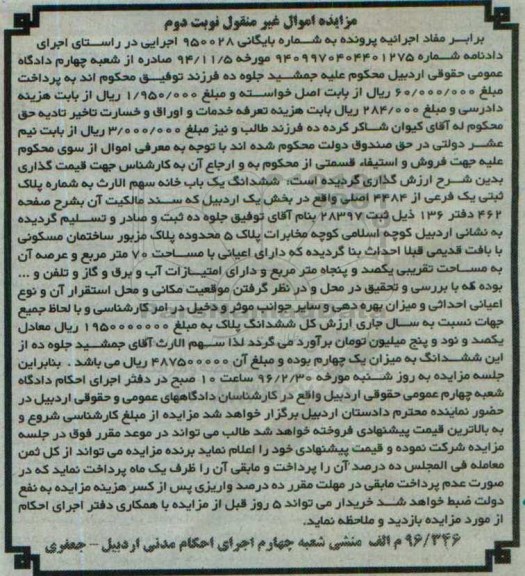 مزایده اموال غیر منقول نوبت دوم
برابر مفاد اجرائیه پرونده به شماره بایگانی ۹۵۰۰۲۸ اجرایی در راستای اجرای
دادنامه شماره ۹۴۰۹۹۷۰۴۰۴۴۰۱۲۷۵ مورخه ۹۴/۱۱/۵ صادره از شعبه چهارم دادگاه
عمومی حقوقی اردبیل محکوم علیه جمشید جلوه ده فرزند توفیق محکوم اند به پرداخت
مبلغ ۶۰/۰۰۰/۰۰۰ ریال از بابت اصل خواسته و مبلغ ۱/۹۵۰/۰۰۰ ریال از بابت هزینه
دادرسی و مبلغ ۲۸۴/۰۰۰ ریال بابت هزینه تعرفه خدمات و اوراق و خسارت تاخیر تادیه حق
محکوم له آقای کیوان شاکر کرده ده فرزند طالب و نیز مبلغ ۳/۰۰۰/۰۰۰ ریال از بابت نیم
عشر دولتی در حق صندوق دولت محکوم شده اند با توجه به معرفی اموال از سوی محکوم
علیه جهت فروش و استیفاء قسمتی از محکوم به و ارجاع آن به کارشناس جهت قیمت گذاری
بدین شرح ارزش گذاری گردیده است: ششدانگ یک باب خانه سهم الارث به شماره پلاک
ثبتی یک فرعی از ۴۴۸۴ اصلی واقع در بخش یک اردبیل که سند مالکیت آن بشرح صفحه
۴۶۲ دفتر ۱۳۶ ذیل ثبت ۲۸۳۹۷ بنام آقای توفیق جلوه ده ثبت و صادر و تسلیم گردیده
به نشانی اردبیل کوچه اسلامی کوچه مخابرات پلاک ۵ محدوده پلاک مزبور ساختمان مسکونی
با بافت قدیمی قبلا احداث بنا گردیده که دارای اعیانی با مساحت ۷۰ متر مربع و عرصه آن
به مساحت تقریبی یکصد و پنجاه متر مربع و دارای امتیازات آب و برق و گاز و تلفن و ...
بوده که با بررسی و تحقیق در محل و در نظر گرفتن موقعیت مکانی و محل استقرار آن و نوع
اعیانی احداثی و میزان بهره دهی و سایر جوانب موثر و دخیل در امر کارشناسی و با لحاظ جمیع
جهات نسبت به سال جاری ارزش کل ششدانگ پلاک به مبلغ ۱۹۵۰۰۰۰۰۰۰ ریال معادل
یکصد و نود و پنج میلیون تومان برآورد می گردد لذا سهم الارث آقای جمشید جلوه ده از
این ششدانگ به میزان یک چهارم بوده و مبلغ آن ۴۸۷۵۰۰۰۰۰ ریال می باشد . بنابراین
جلسه مزایده به روز شنبه مورخه ۹۶/۲/۳۰ ساعت ۱۰ صبح در دفتر اجرای احکام دادگاه
شعبه چهارم عمومی حقوقی اردبیل واقع در کارشناسان دادگاههای عمومی و حقوقی اردبیل در
حضور نماینده محترم دادستان اردبیل برگزار خواهد شد مزایده از مبلغ کارشناسی شروع و
به بالاترین قیمت پیشنهادی فروخته خواهد شد طالب می تواند در موعد مقرر فوق در جلسه
مزایده شرکت نموده و قیمت پیشنهادی خود را اعلام نماید برنده مزایده می تواند از کل ثمن
معامله فی المجلس ده درصد آن را پرداخت و مابقی آن را ظرف یک ماه پرداخت نماید که در
صورت عدم پرداخت مابقی در مهلت مقرر ده درصد واریزی پس از کسر هزینه مزایده به نفع
دولت ضبط خواهد شد خریدار می تواند ۵ روز قبل از مزایده با همکاری دفتر اجرای احکام
از مورد مزایده بازدید و ملاحظه نماید.
۹۶/۳۴۶ م الف منشی شعبه چهارم اجرای احکام مدنی اردبیل - جعفری